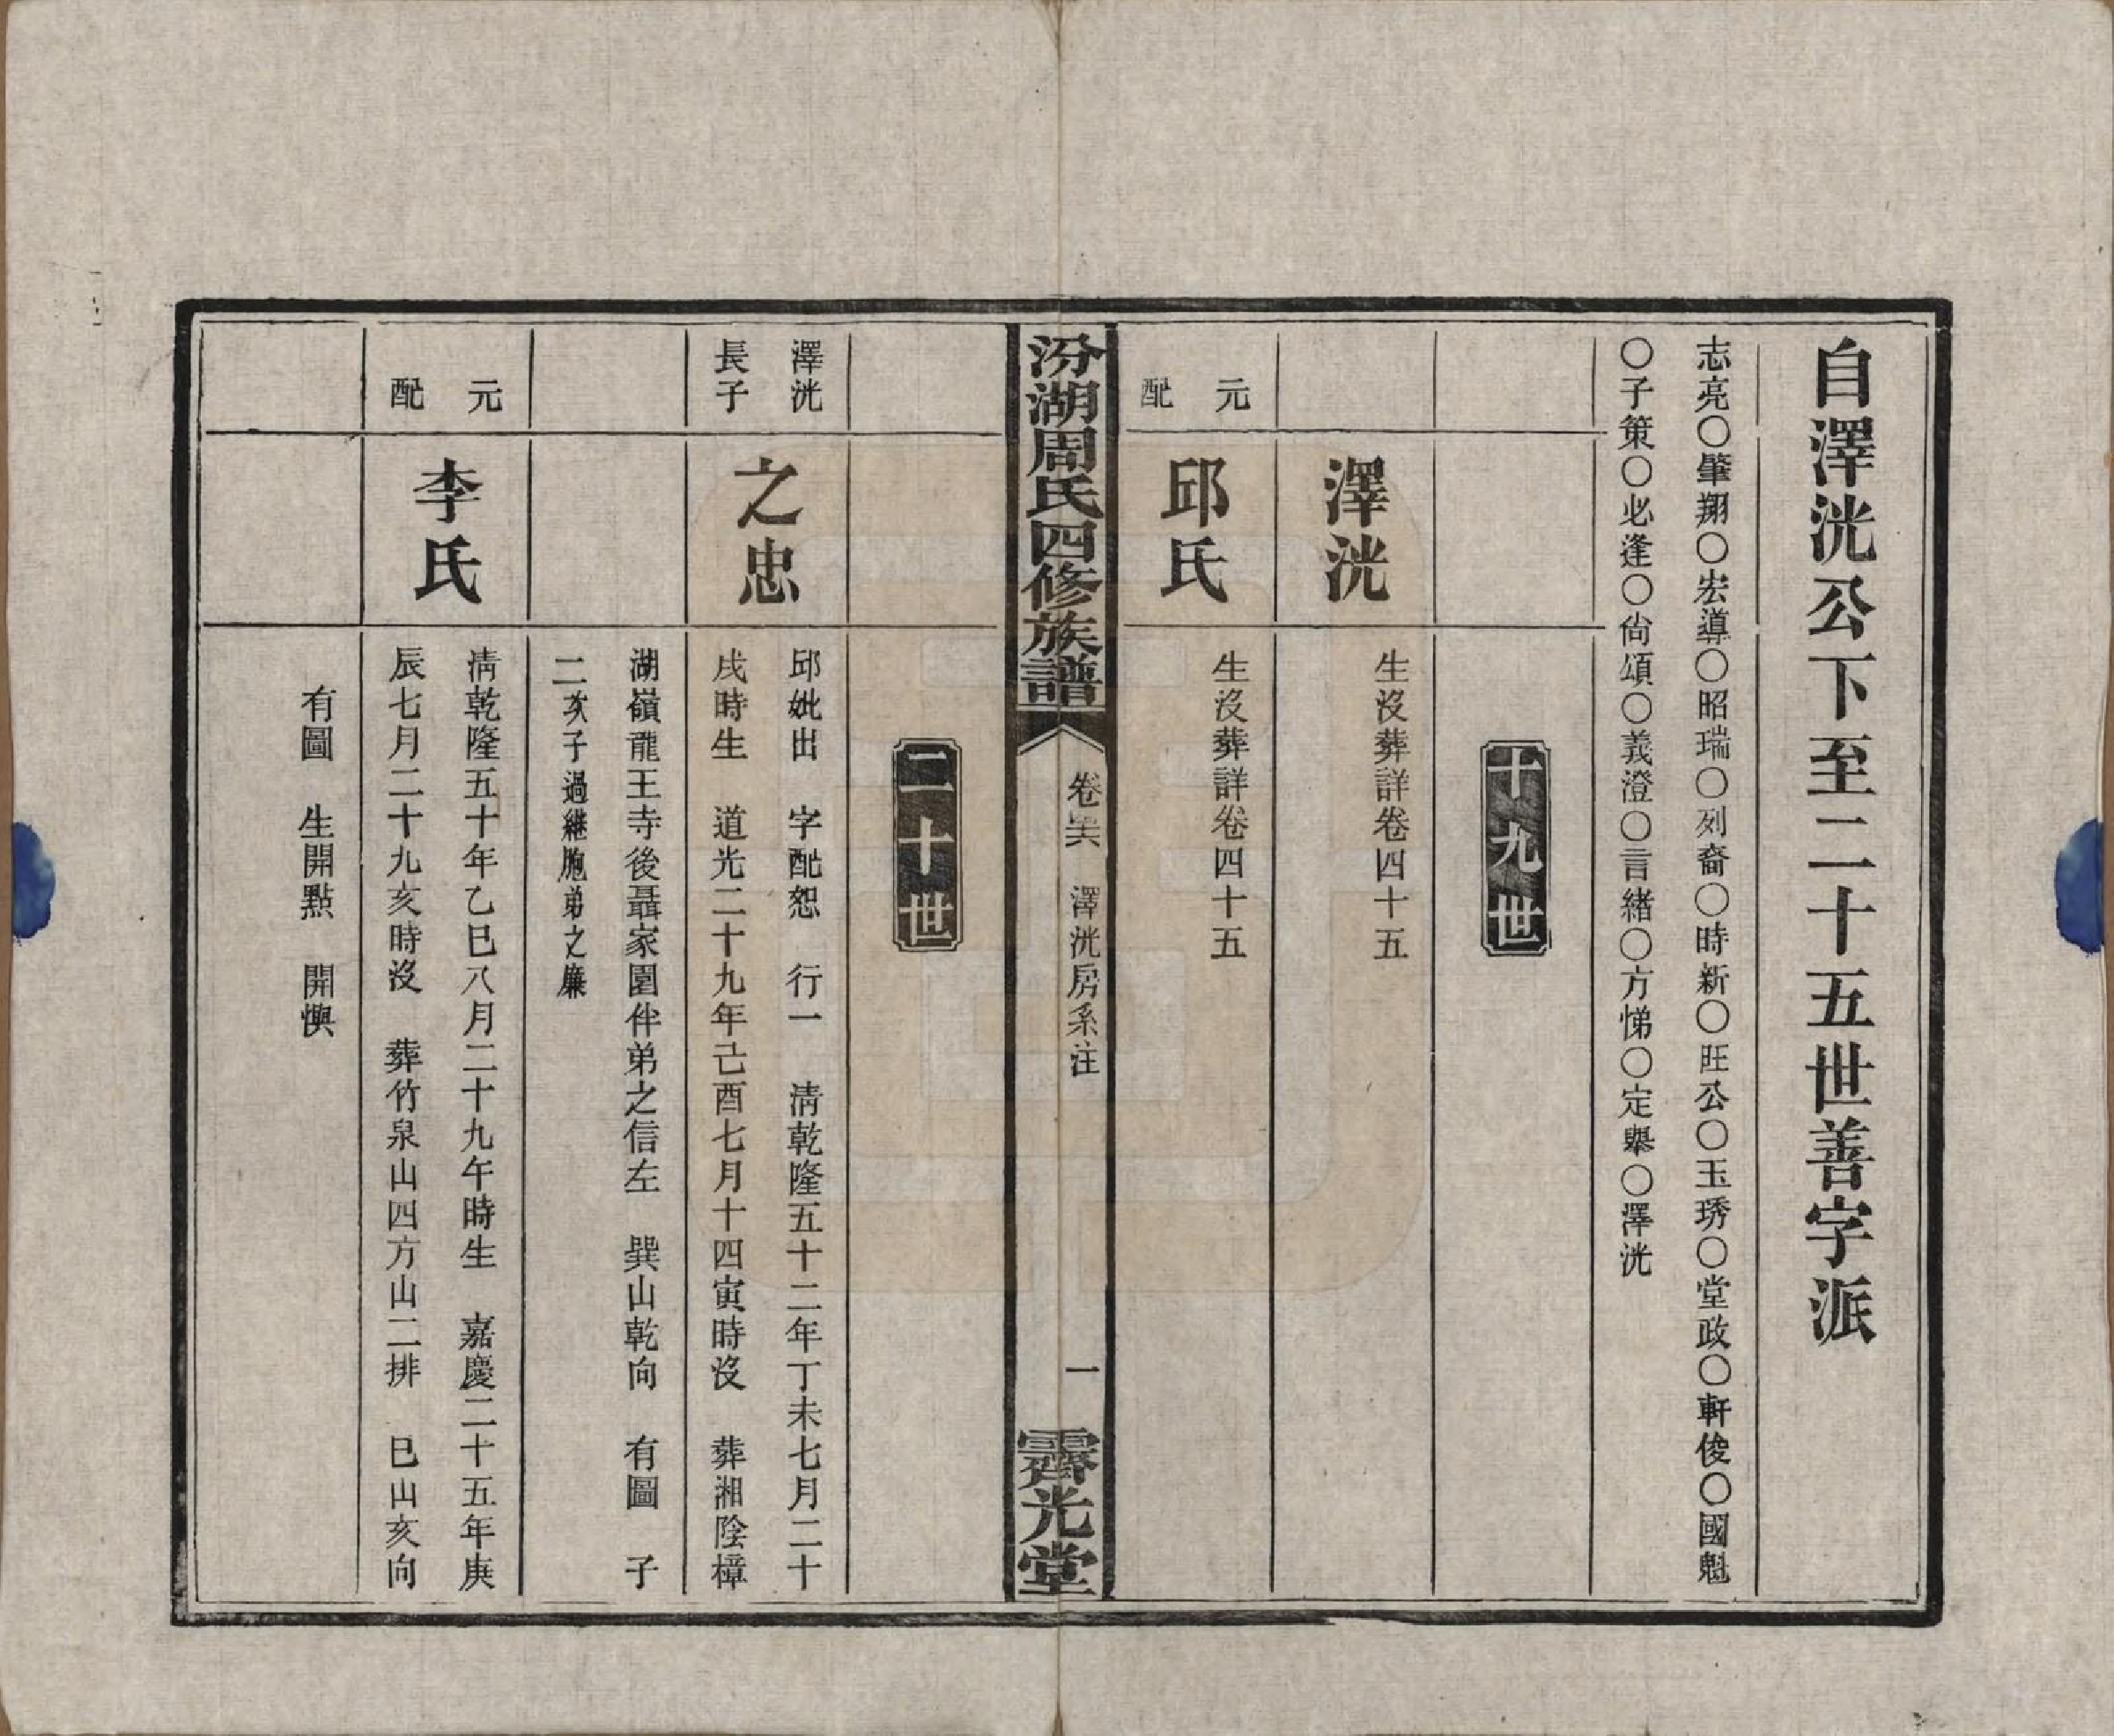 自澤洸公下至二十五世善字派
志亮〇肇翔〇宏導〇昭瑞〇列裔〇時新〇旺公〇玉琇〇堂政〇軒俊〇國魁
〇子策〇必逢〇尙頌〇義澄〇言緒〇方悌〇定舉〇澤洸
十九世
澤洸
生沒葬詳卷四十五
元
配
邱氏
生沒葬詳卷四十五
汾湖周氏四修族譜
卷 澤洸房系注
一
霽光堂
二十世
澤洸
長子
之忠
邱妣出 字配恕 行一 淸乾隆五十二年丁未七月二十
戌時生 道光二十九年己酉七月十四寅時沒 葬湘陰樟
湖嶺龍王寺後聶家園伴弟之信左 巽山乾向 有圖 子
二次子過繼胞弟之廉
元
配
李氏
淸乾隆五十年乙巳八月二十九午時生 嘉慶二十五年庚
辰七月二十九亥時沒 葬竹泉山四方山二排 巳山亥向
有圖 生開點 開懊